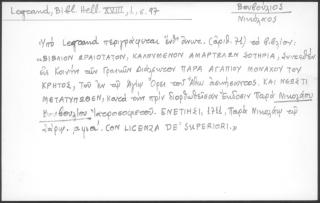 Legrand, Bibl. Hell. XVIII, 1, σ. 97
Βουβούλιος
Νικόλαος
Ὑπὸ Legrand περιγράφεται (ἀριθ. 71) τὸ βιβλίον:
"ΒΙΒΛΙΟΝ ΩΡΑΙΟΤΑΤΟΝ, ΚΑΛΟΥΜΕΝΟΝ ΑΜΑΡΤΩΛΩΝ ΣΩΤΗΡΙΑ, Συντεθὲν
εἰς Κοινὴν τῶν Γραικῶν Διάλεκτον ΠΑΡΑ ΑΓΑΠΙΟΥ ΜΟΝΑΧΟΥ ΤΟΥ
ΚΡΗΤΟΣ, Τοῦ ἐν τῷ Ἁγίῳ Ὄρει τοῦ Ἄθω ἀσκήσαντος. ΚΑΙ ΝΕΩΣΤΙ
ΜΕΤΑΤΥΠΩΘΕΝ, κατὰ τὴν πρὶν διορθωθεῖσαν Ἔκδοσιν Παρὰ Νικολάου
Βουβουλίου Ἱατροσοφιστοῦ. ΕΝΕΤΙΗΣΙ, 1711, Παρὰ Νικολάῳ τῷ
Σάρῳ. αψιά. CON LICENZA DE' SUPERIORI."